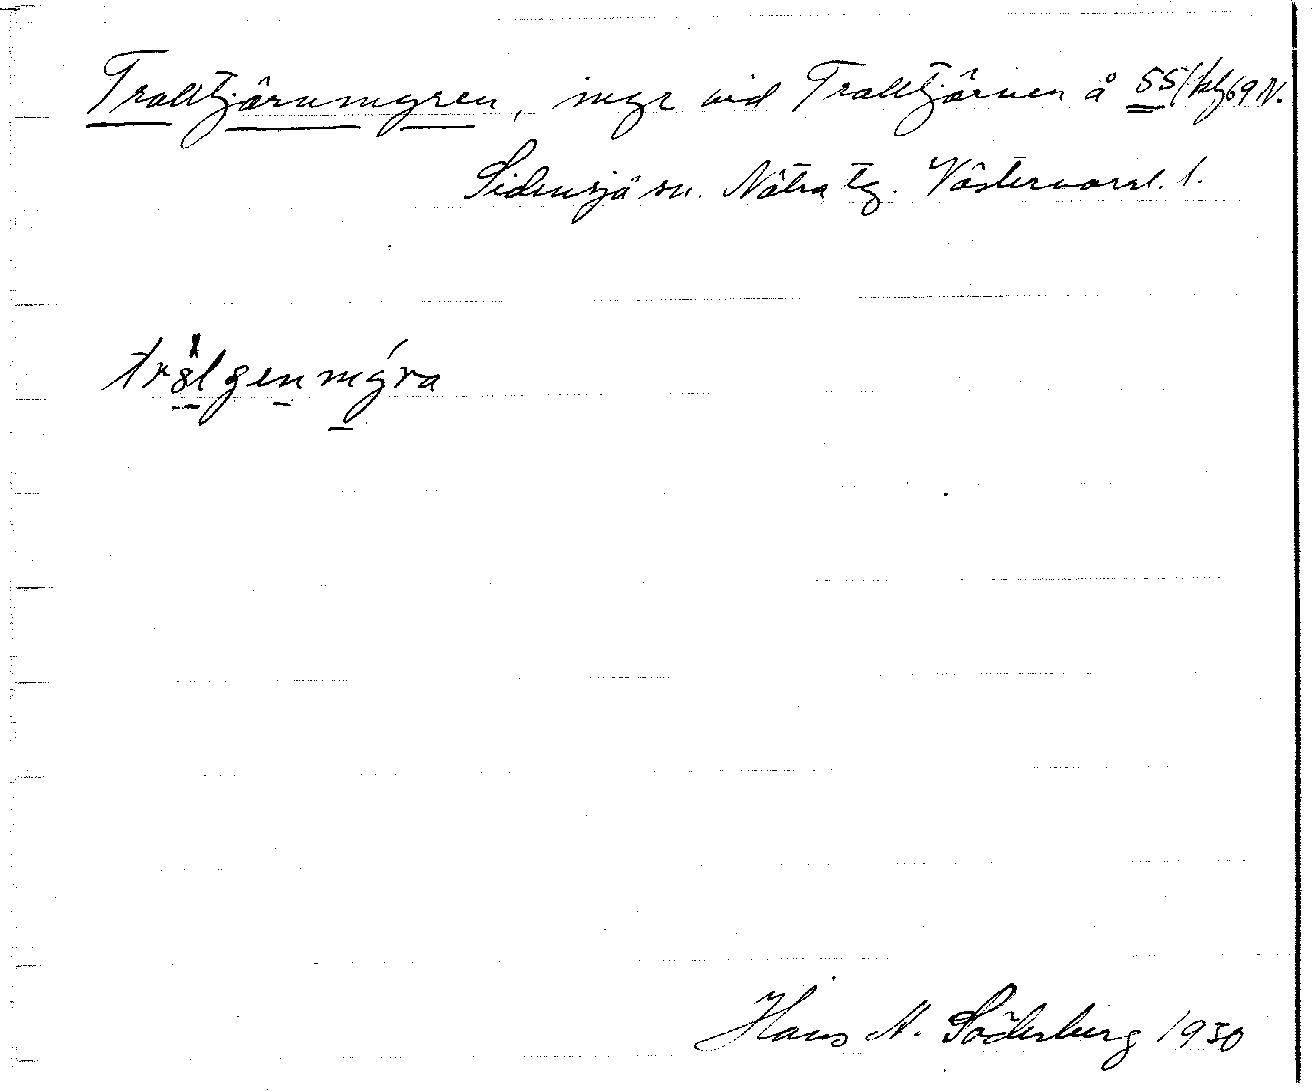 Trolltjärnmyren, myr vid Trolltjärnen å 55/kf 69 N.
Sidensjö sn. Nätra tg. Västernorrl. l.
trålgenmýra
Hans N. Söderberg 1930